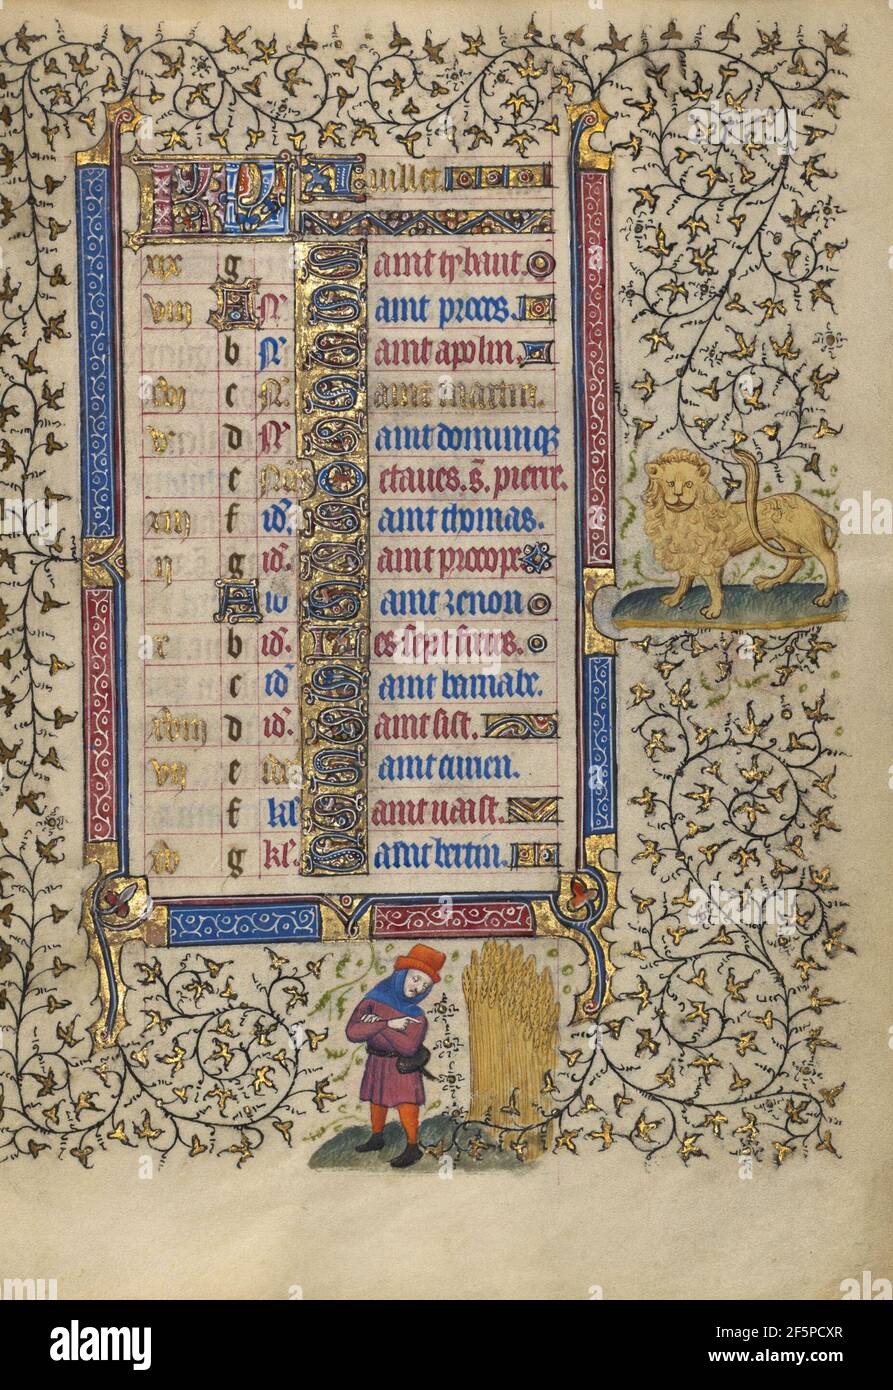 KL Juillet.
xix g Saint tybaut.
viii A N. Saint proces.
b N. Saint apolin.
xvi c N. Saint martin.
v d N. Saint dominiq
e N. Octaues. S. pierre.
xiii f id. Saint thomas.
ii g id. Saint procopr
A id Saint zenon
x b id. Les sept freres.
c id Saint barnabe.
xviii d id. Saint sist.
vii e id Saint
f kl Saint
xv g kl. Saint bertin.
alamy
Image ID: 2F5PCXR
www.alamy.com